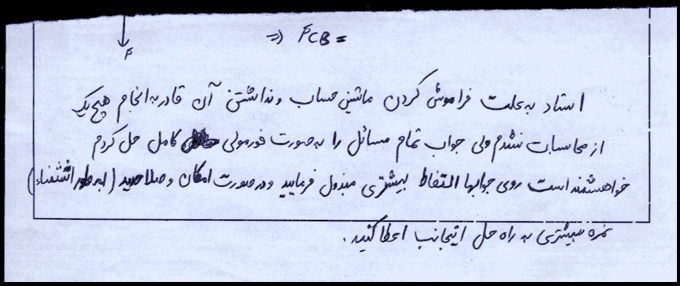 => FCB =
F
استاد به علت فراموش کردن ماشین حساب و نداشتن آن قادر به انجام هیچ یک
از محاسبات نشدم ولی جواب تمام مسائل را به صورت فورمولی کامل حل کردم
خواهشمند است روی جوابها التفاط بیشتری مبذول فرمایید و در صورت امکان و صلاحدید (به طور اثتثناء)
نمره بیشتری به راه حل اینجانب اعطا کنید.